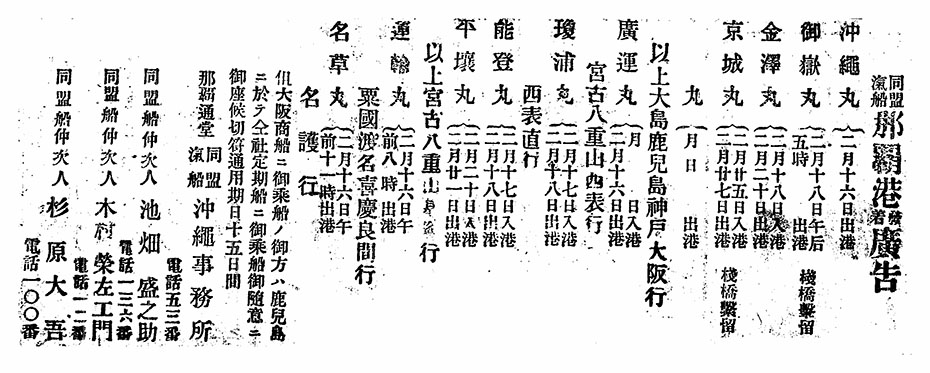 同盟
滊船
那覇港發着廣告
沖繩丸 二月十六日出港
御嶽丸 二月十八日午后五時出港 棧橋繫留
金澤丸 二月十八日入港 二月二十日出港
京城丸 二月廿五日入港 二月廿七日出港 棧橋繫留
丸 月 日 出港
以上大島鹿兒島神戸大阪行
廣運丸 月 日入港 二月十六日出港
宮古八重山西表行
瓊浦丸 二月十七日入港 二月十八日出港
西表直行
能登丸 二月十七日入港 二月十八日出港
平壤丸 二月二十日入港 二月廿一日出港
以上宮古八重山行
運輸丸 二月十六日午前八時出港
粟國渡名喜慶良間行
名草丸 二月十六日午前十一時出港
名護行
但大阪商船ニ御乘船ノ御方ハ鹿兒島
ニ於テ仝社定期船ニ御乘船御隨意ニ
御座候切符通用期日十五日間
那覇通堂 同盟滊船 沖繩事務所
電話五三番
同盟船仲次人 池畑盛之助
電話一三六番
同盟船仲次人 木村榮左工門
電話一二番
同盟船仲次人 杉原大吾
電話一〇〇番